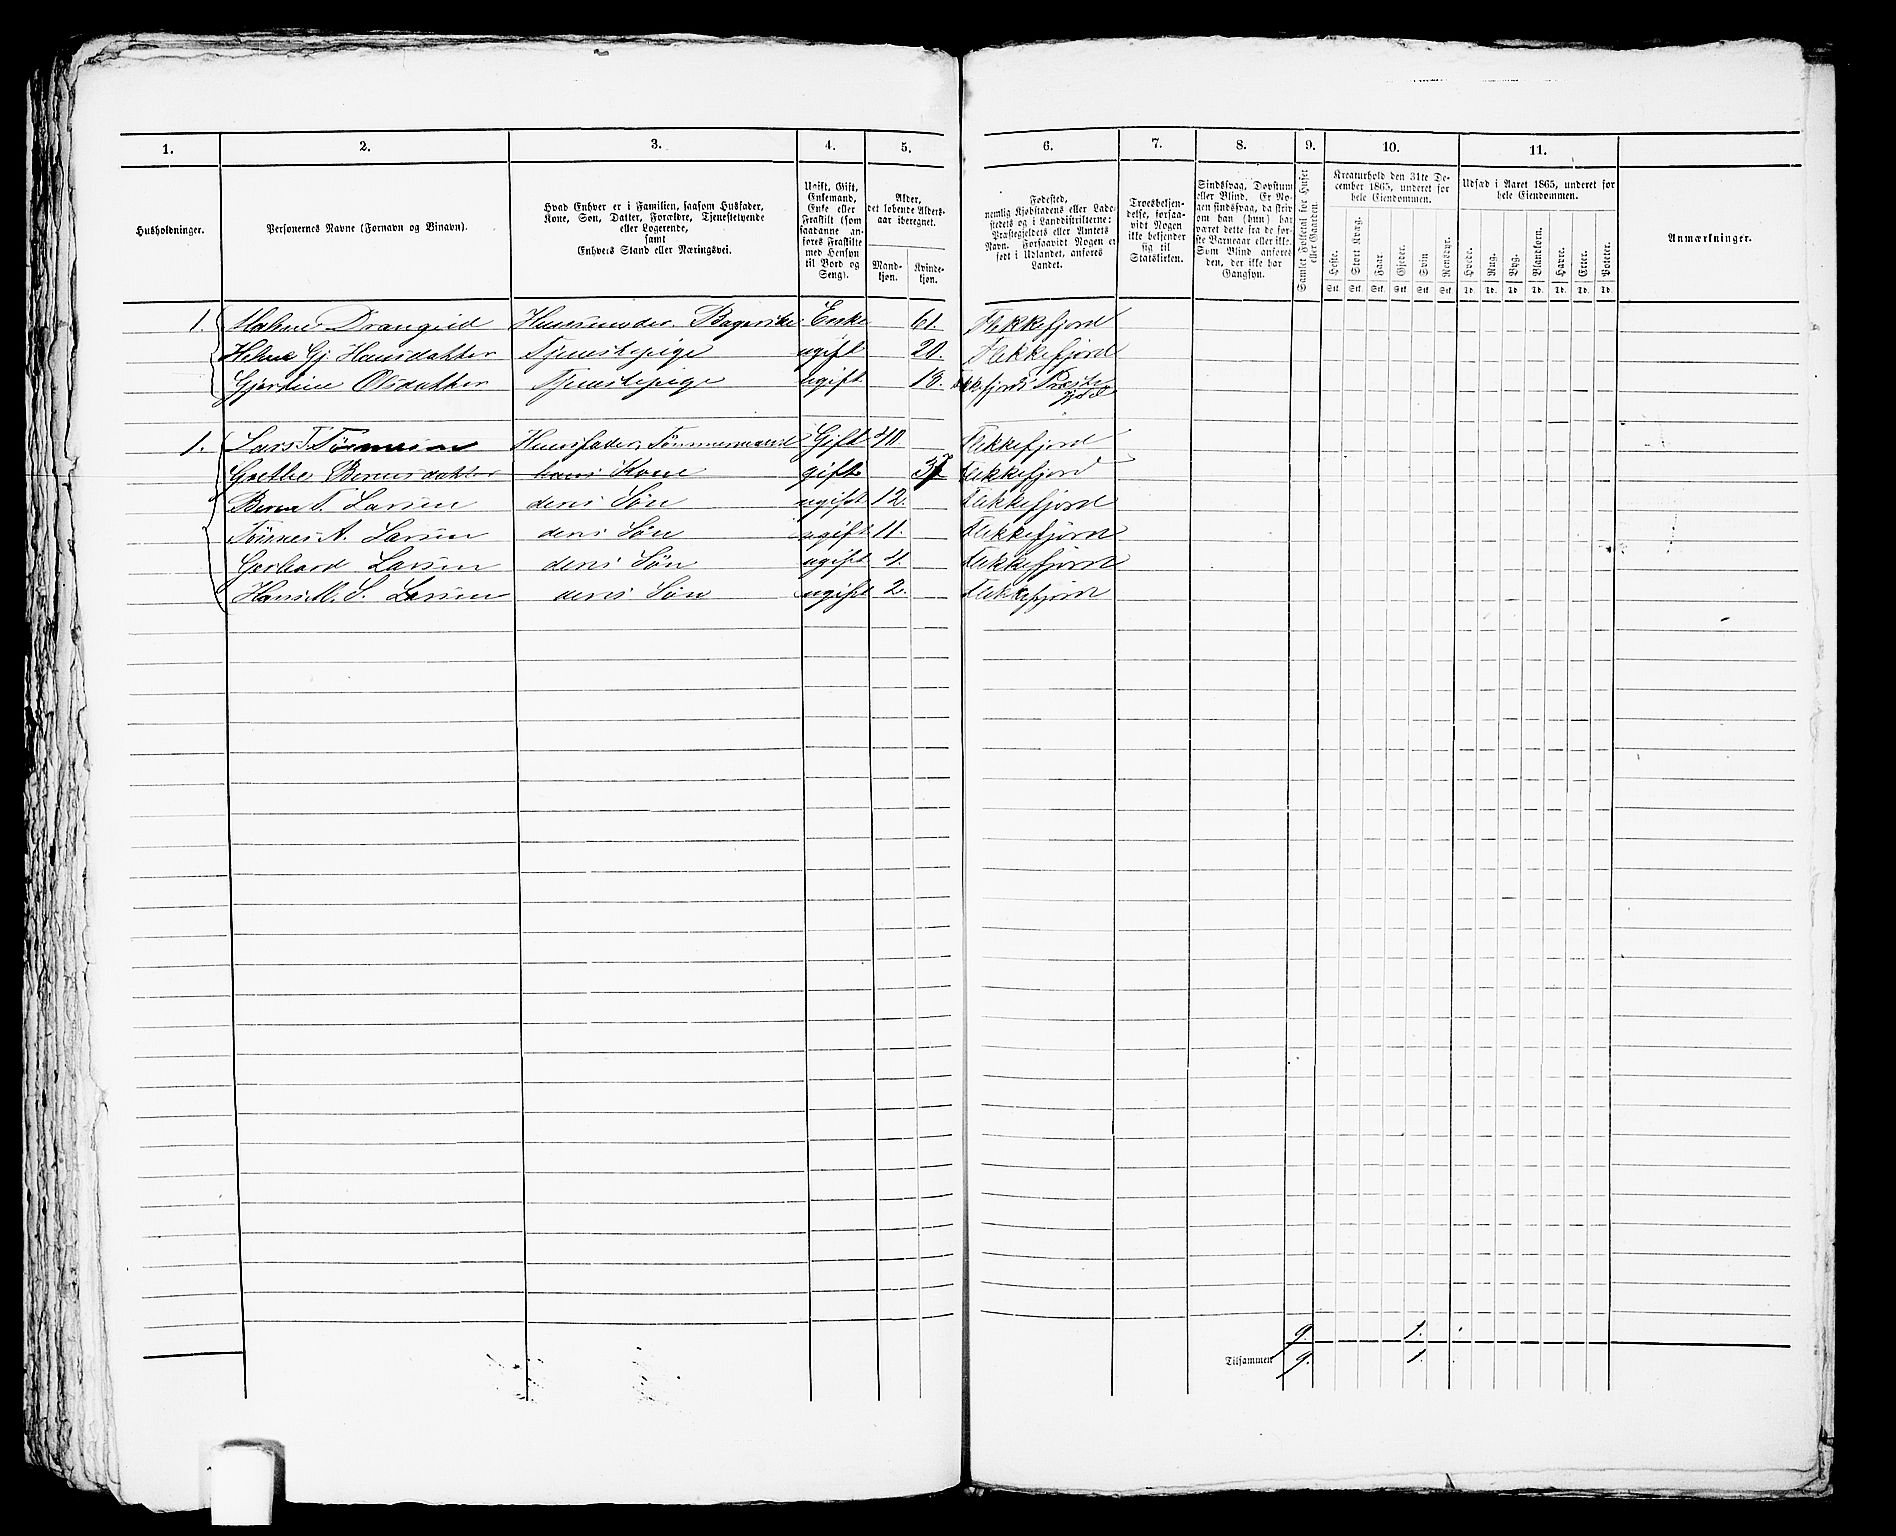 1. 2. 3. 4. 5. 6. 7. 8. 9. 10. 11.
Husholdninger.
Personernes Navne (Fornavn og Binavn).
Hvad Enhver er i Familien, saasom Husfader,
Kone, Søn, Datter, Forældre, Tjenestetyende
eller Logerende,
samt
Enhvers Stand eller Næringsvei.
Ugift, Gift,
Enkemand,
Enke eller
Fraskilt (som
saadanne an-
føres Fraskilte
med Hensyn
til Bord og
Seng).
Alder,
det løbende Alders-
aar iberegnet.
Mand-
kjøn.
Kvinde-
kjøn.
Fødested,
nemlig Kjøbstadens eller Lade-
stedets og i Landdistrikterne:
Præstegjeldets eller Amtets
Navn. Forsaavidt Nogen er
født i Udlandet, anføres
Landet.
Troesbekjen-
delse, forsaa-
vidt Nogen
ikke bekjender
sig til
Statskirken.
Sindssvag, Døvstum
eller Blind. Er No-
gen sindssvag, da skri-
ves om han (hun) har
været dette fra de før-
ste Barneaar eller ikke.
Som Blind anføres
den, der ikke har
Gangsyn.
Samlet Folketal for Huset
eller Gaarden.
Kreaturhold den 31te De-
cember 1865, underet for
hele Eiendommen.
Heste. Stort Kvæg. Faar. Gjeder. Svin Rensdyr.
Stk. Stk. Stk. Stk. Stk. Stk.
Udsæd i Aaret 1865, underet for
hele Eiendommen.
Hvede. Rug. Byg. Blandkorn. Havre. Erter. Poteter.
Td. Td. Td. Td. Td. Td. Td.
Anmærkninger.
1. Drangeid Huusmoder. Enke 61. Flekkefjord
Helene Gj. Hansdatter Tjenestepige ugift 20. Flekkefjord
Gjertine Olsdatter Tjenestepige ugift 18. Flekkefjords Præste
gjeld
1. Lars T. Tønnesen Huusfader, Tømmermand Gift 40. Flekkefjord
Grethe Berntsdatter hans Kone gift 37 Flekkefjord
Bernt T. Larsen deres Søn ugift 12. Flekkefjord
Tønnes A. Larsen deres Søn ugift 11. Flekkefjord
Gerhard Larsen deres Søn ugift 4. Flekkefjord
Hans M. S. Larsen deres Søn ugift 2. Flekkefjord
9. 1.
Tilsammen 9. 1.